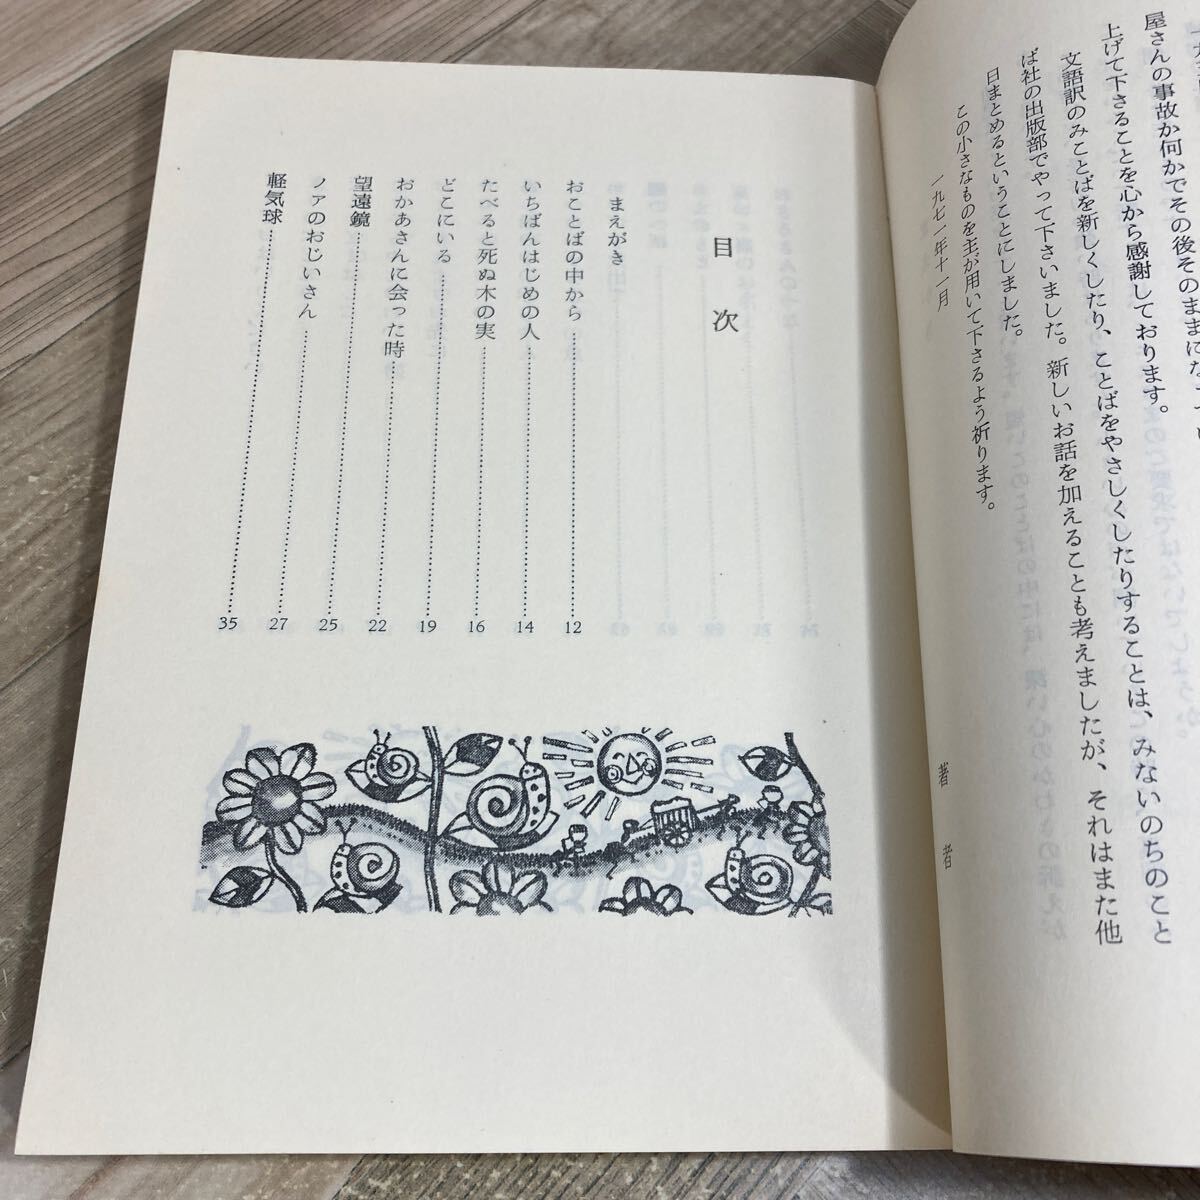 屋さんの事故か何かでその後そのままになって
上げて下さることを心から感謝しております。
文語訳のみことばを新しくしたり、ことばをやさしくしたりすることは、みないのちのこと
ば社の出版部でやって下さいました。新しいお話を加えることも考えましたが、それはまた他
日まとめるということにしました。
この小さなものを主が用いて下さるよう祈ります。
一九七一年十一月
著者
目次
まえがき
おことばの中から 12
いちばんはじめの人 14
たべると死ぬ木の実 16
どこにいる 19
おかあさんに会った時 22
望遠鏡 25
ノアのおじいさん 27
軽気球 35